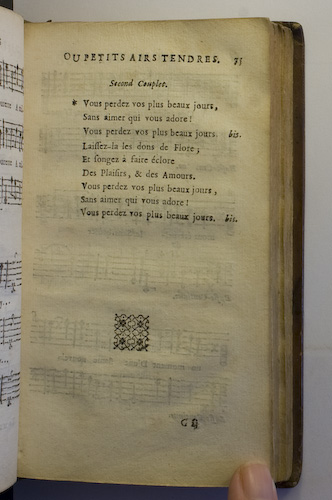 OU PETITS AIRS TENDRES. 75
Second Couplet.
* Vous perdez vos plus beaux jours,
Sans aimer qui vous adore!
Vous perdez vos plus beaux jours. bis.
Laissez-là les dons de Flore,
Et songez à faire éclore
Des Plaisirs, & des Amours.
Vous perdez vos plus beaux jours,
Sans aimer qui vous adore!
Vous perdez vos plus beaux jours. bis.